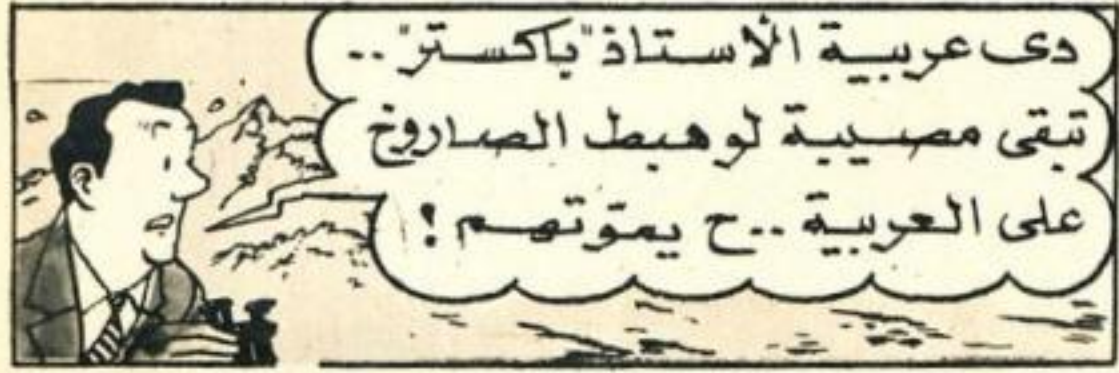 دى عربية الأستاذ "باكستر" ..
تبقى مصيبة لو هبط الصاروخ
على العربية .. ح يموّتهم !